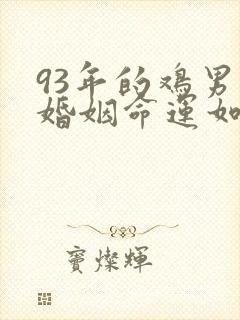 93年的鸡男
婚姻命运如
宝燦輝